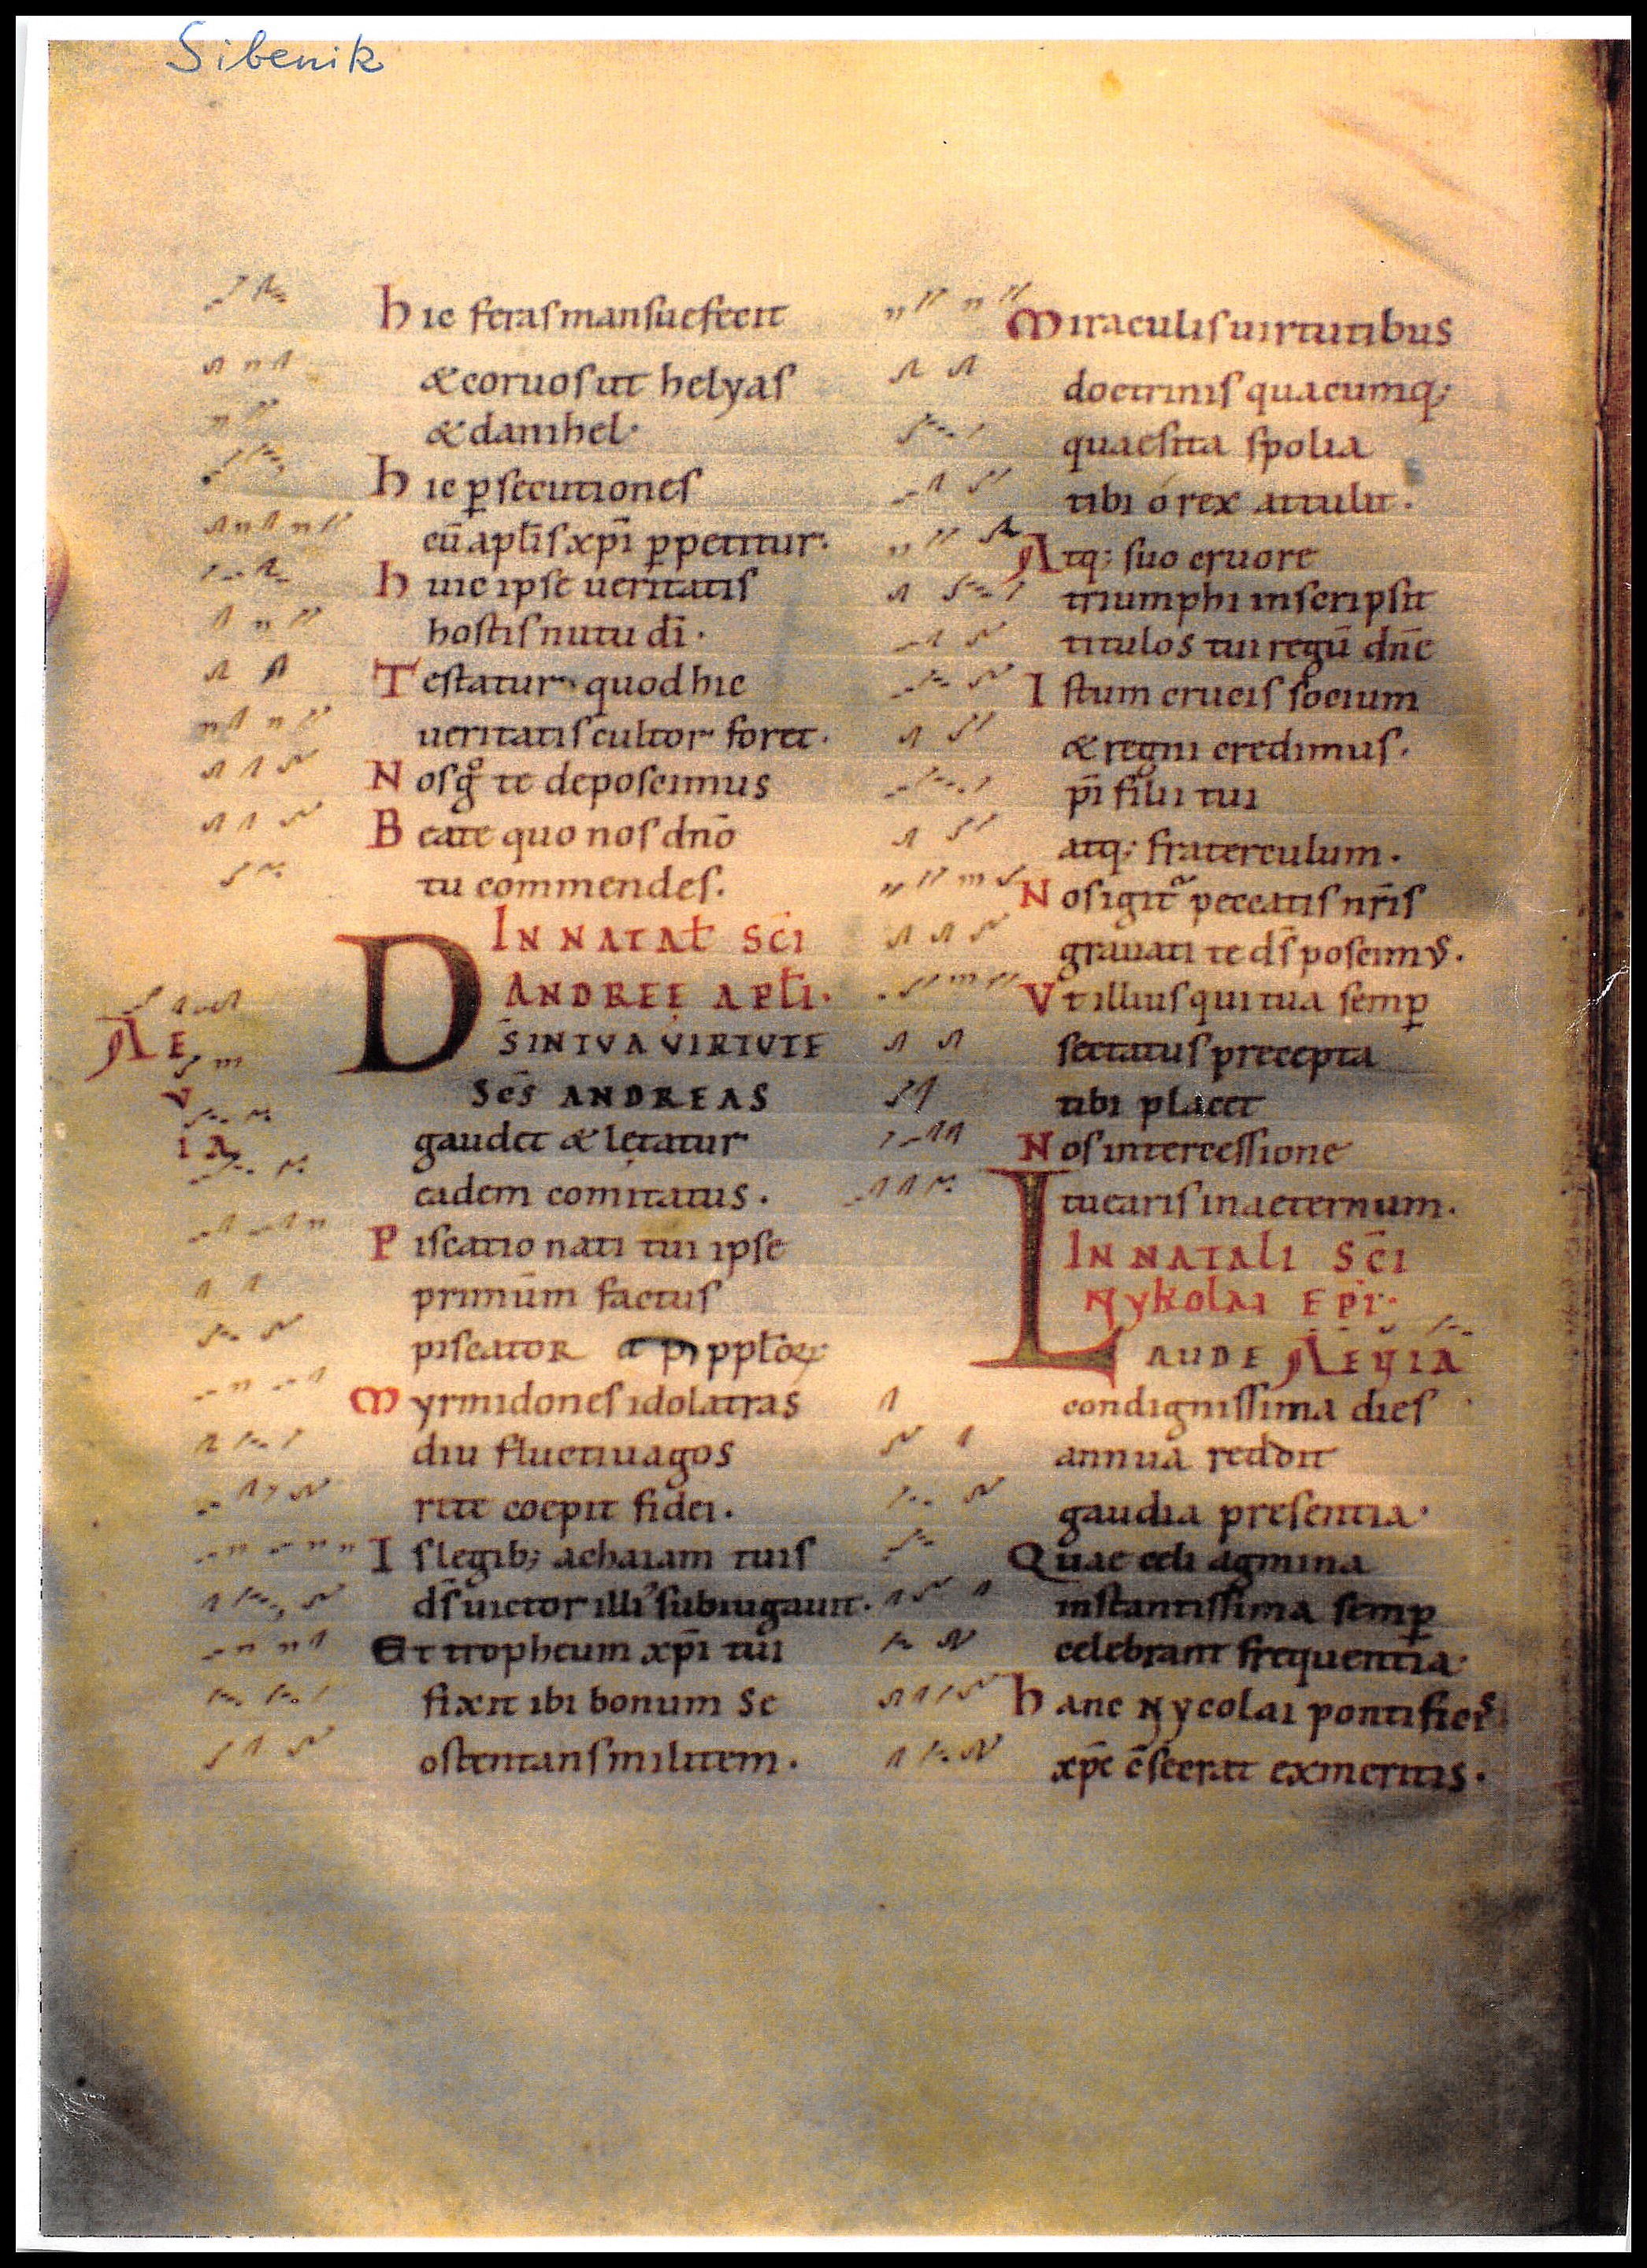 Sibenik
hic feras mansuefecit
& coruos ut helyas
& danihel.
hic p̲secutiones
cū aplīs xp̄i p̲petitur.
huic ipse ueritatis
hostis nutu dī.
Testatur quod hic
ueritatis cultor foret.
Nos gͦ te deposcimus
Beate quo nos dn̄o
tu commendes.
IN NATAŁ SC̄I
ANDREĘ APŁI.
AEVIA
D̄S IN TVA VIRTVTE
Sc̄s ANDREAS
gaudet & lętatur
eadem comitatus.
Piscatio nati tui ipse
primum factus
piscator
Myrmidones idolatras
diu fluctiuagos
rite coepit fidei.
Is legib; achaiam tuis
d̄s uictor illi' subiugauit.
Et tropheum xp̄i tui
fixit ibi bonum se
ostentans militem.
Miraculis uirtutibus
doctrinis quacumq;
quaesita spolia
tibi ó rex attulit.
Atq; suo cruore
triumphi inscripsit
titulos tui regū dn̄e
Istum crucis socium
& regni credimus.
p̄i filii tui
atq; fraterculum.
Nos igit᷑ peccatis nr̄is
grauati te d̄s poscim᾿.
Vt illius qui tua semp̲
sectatus precepta
tibi placet
Nos intercessione
tuearis in aeternum.
IN NATALI SC̄I
NykolAI EP̄I.
LAUDE AEVIA
condignissima dies
annua reddit
gaudia presentia.
Quae celi agmina
instantissima semp̲
celebrant frequentia.
hanc Nycolai pontific᾿
xp̄e c̄secrat ex meritis.